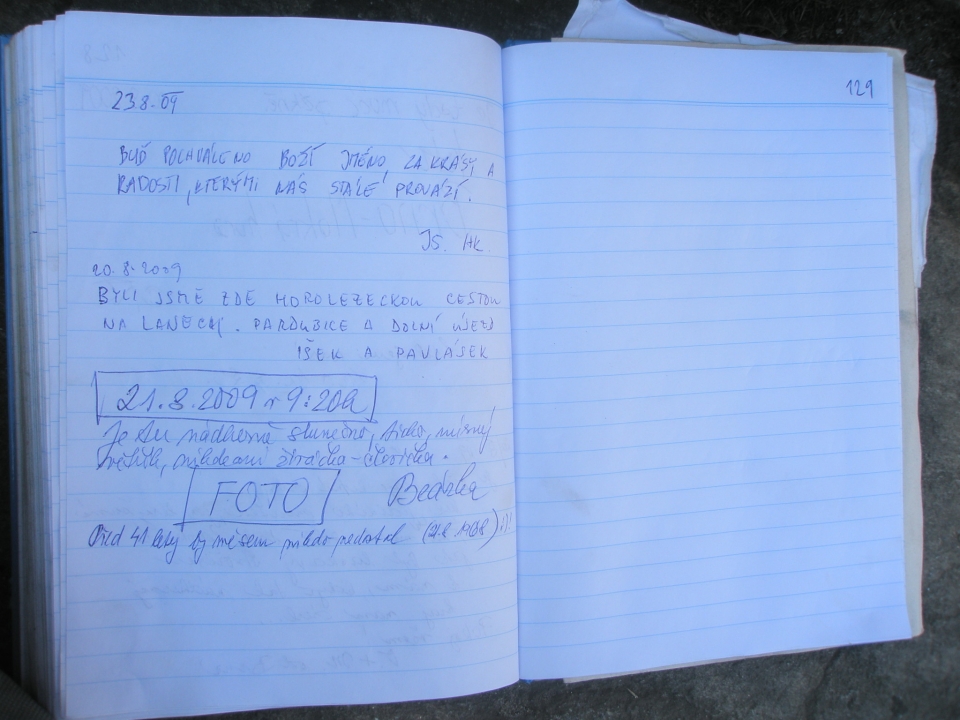 23.8.09
BUĎ POCHVÁLENO BOŽÍ JMÉNO, ZA KRÁSY A
RADOSTI, KTERÝMI NÁS STÁLE PROVÁZÍ.
JS. HK
20.8.2009
BYLI JSME ZDE HOROLEZECKOU CESTOU
NA LANECH. PARDUBICE A DOLNÍ ÚJEZD
IŠEK A PAVLÁSEK
21.8.2009 v 9:20h
Je tu nádherně slunečno, ticho, mírný
větřík, nikde ani živáčka-človíčka.
FOTO Bedrka
Před 41 lety by mě sem nikdo nedostal (21.8.1968)!!!
129